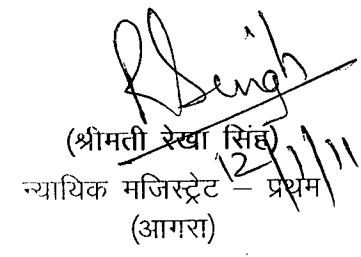 RSingh
(श्रीमती रेखा सिंह)
12/1/11
न्यायिक मजिस्ट्रेट – प्रथम
(आगरा)